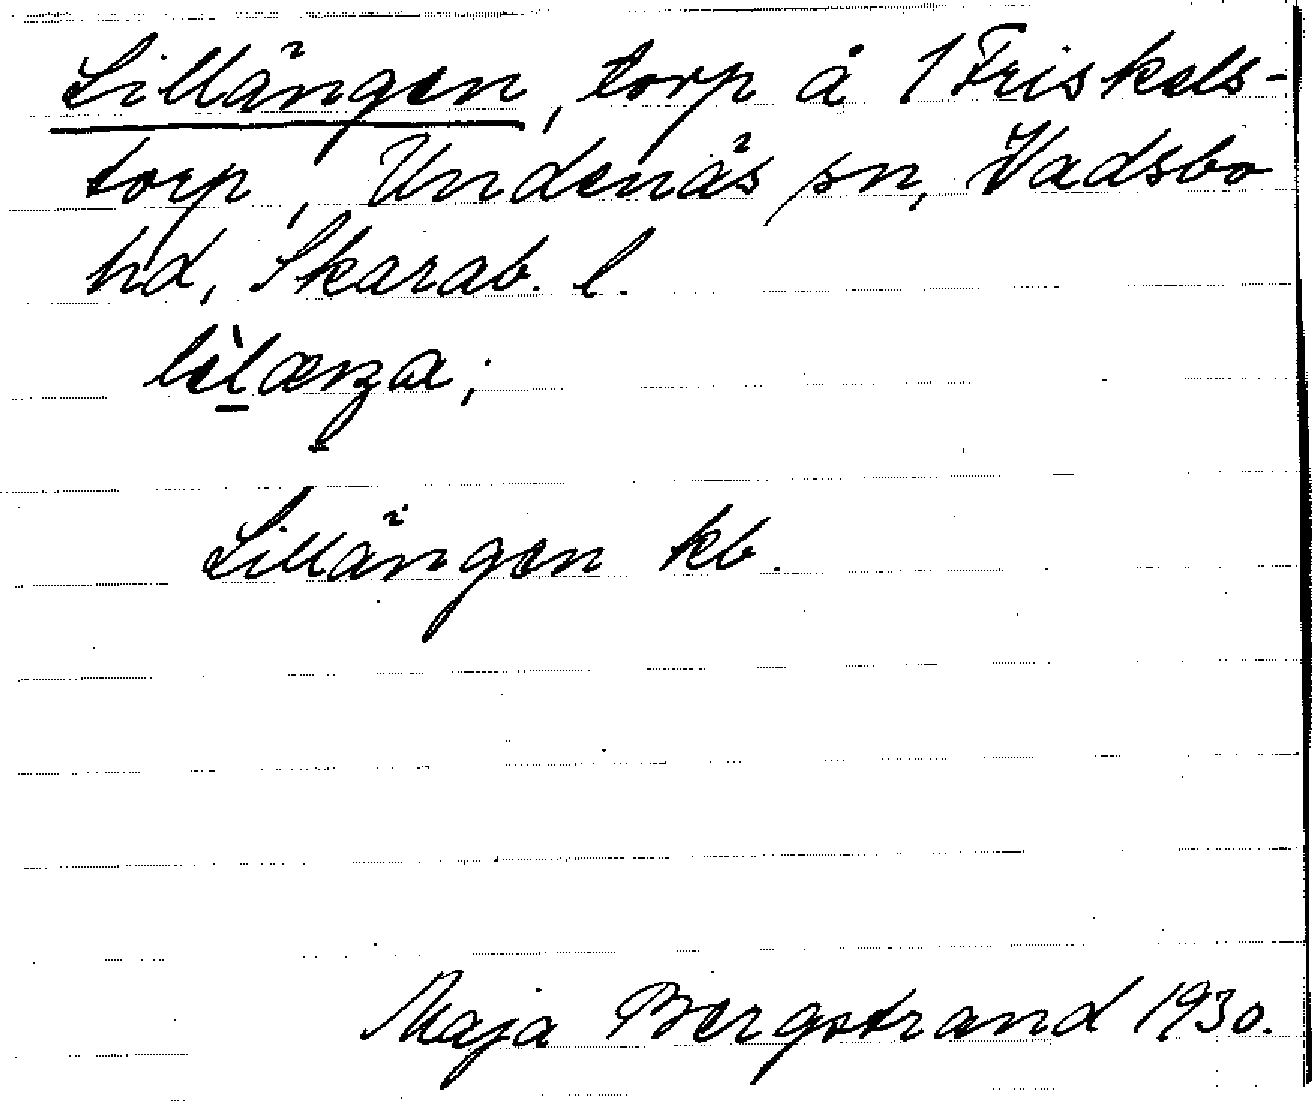 Lillängen, torp å 1 Friskels-
torp, Undenäs sn, Vadsbo
hd, Skarab. l.
Lillängen kb.
Maja Bergstrand 1930.